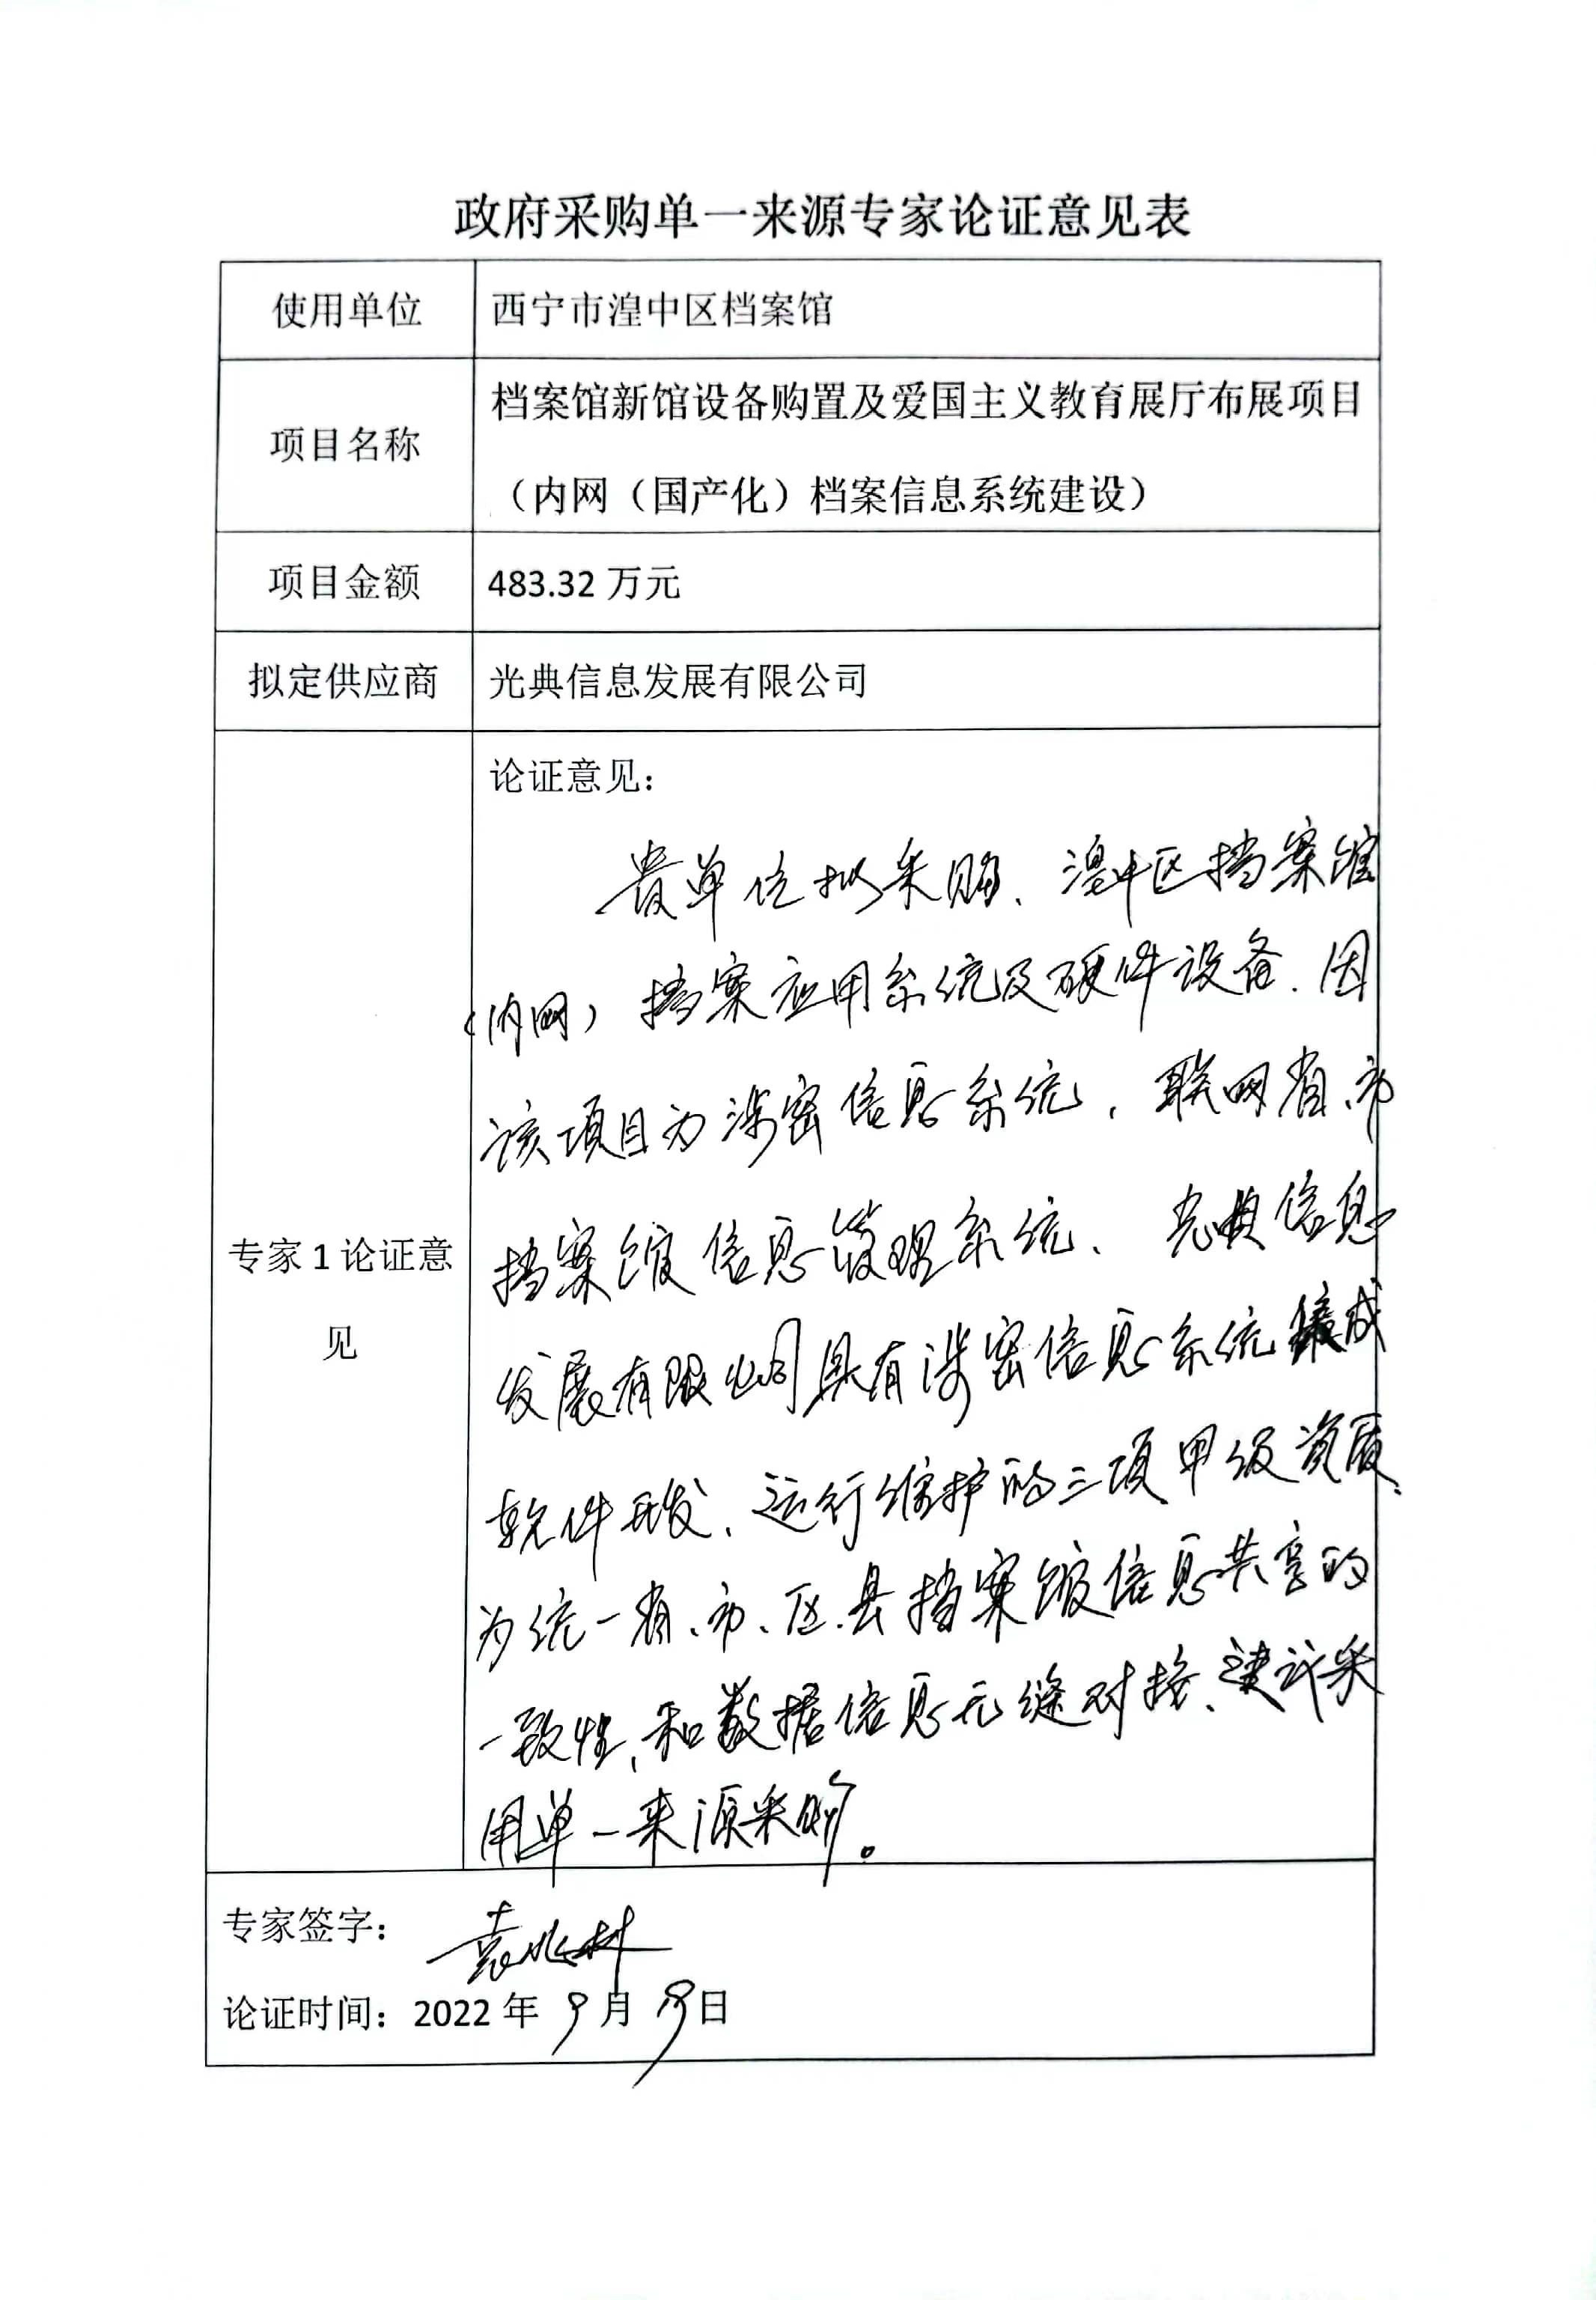 政府采购单一来源专家论证意见表
使用单位
西宁市湟中区档案馆
项目名称
档案馆新馆设备购置及爱国主义教育展厅布展项目
（内网（国产化）档案信息系统建设）
项目金额
483.32 万元
拟定供应商
光典信息发展有限公司
专家 1 论证意
见
论证意见：
贵单位拟采购、湟中区档案馆
（内网）档案应用系统及硬件设备．因
该项目为涉密信息系统，联网省、市
档案馆信息管理系统、光典信息
发展有限公司具有涉密信息系统集成
软件开发、运行维护的三项甲级资质、
为统一省、市、区.县档案馆信息共享的
一致性，和数据信息无缝对接、建议采
用单一来源采购。
专家签字：
论证时间：2022 年 9 月 日